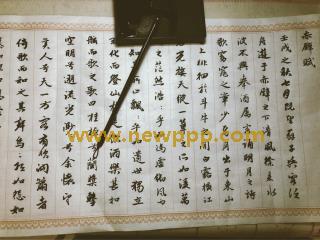 赤壁賦
壬戌之秋七月既望蘇子與客泛
舟遊於赤壁之下清風徐來水
波不興舉酒屬客誦明月之詩
歌窈窕之章少焉月出于東山
上徘徊於斗牛之間白露橫江
光接天縱一葦之所如凌萬
之茫然浩浩乎馮虛御風而
知其所止飄飄乎如遺世獨立
羽化而登仙於是飲酒樂甚扣
舷而歌之歌曰桂棹兮蘭槳擊
空明兮溯流光渺渺兮余懷望
美人兮天一方客有吹洞簫者
倚歌而和之其聲嗚嗚然如怨如
www.newppp.com